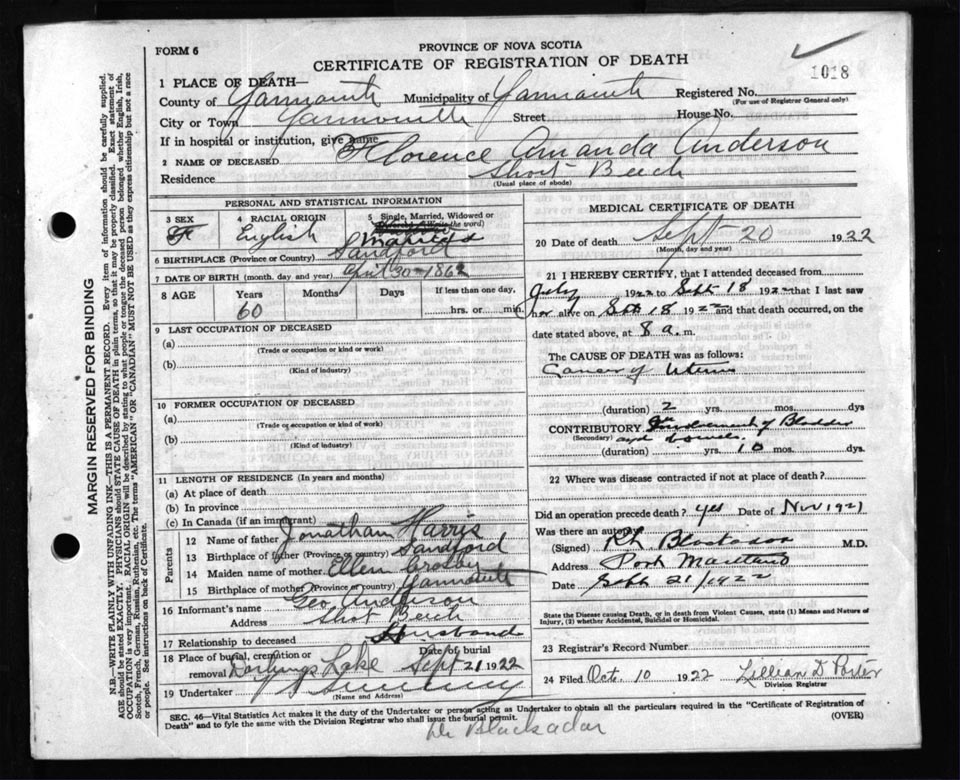 FORM 6
PROVINCE OF NOVA SCOTIA
CERTIFICATE OF REGISTRATION OF DEATH
1018
1 PLACE OF DEATH—
County of Yarmouth Municipality of Yarmouth Registered No.
(For use of Registrar General only)
City or Town Yarmouth Street House No.
If in hospital or institution, give name
2 NAME OF DECEASED Florence Amanda Anderson
Residence Short Beech
(Usual place of abode)
PERSONAL AND STATISTICAL INFORMATION
3 SEX F
4 RACIAL ORIGIN English
5 Single, Married, Widowed or Divorced (Write the word) Married
6 BIRTHPLACE (Province or Country) Sandford
7 DATE OF BIRTH (month, day and year) April 30 - 1862
8 AGE Years Months Days If less than one day,
60 hrs. or min.
9 LAST OCCUPATION OF DECEASED
(a)
(Trade or occupation or kind or work)
(b)
(Kind of industry)
10 FORMER OCCUPATION OF DECEASED
(a)
(Trade or occupation or kind of work)
(b)
(Kind of industry)
11 LENGTH OF RESIDENCE (In years and months)
(a) At place of death
(b) In province
(c) In Canada (if an immigrant)
Parents
12 Name of father Jonathan Harris
13 Birthplace of father (Province or country) Sandford
14 Maiden name of mother Ellen Crosby
15 Birthplace of mother (Province or country) Yarmouth
16 Informant's name Geo Anderson
Address Short Beech
17 Relationship to deceased Husband
18 Place of burial, cremation or removal Darlings Lake Date of burial Sept 21 1922
19 Undertaker Sweeney
(Name and Address)
MEDICAL CERTIFICATE OF DEATH
20 Date of death Sept 20 1922
(Month, day and year)
21 I HEREBY CERTIFY, that I attended deceased from
July 1922 to Sept 18 1922 that I last saw
her alive on Sept 18 1922 and that death occurred, on the
date stated above, at 8 a. m.
The CAUSE OF DEATH was as follows:
Cancer of Uterus
(duration) 2 yrs. mos. dys
CONTRIBUTORY Involvement of Bladder
(Secondary) and bowels
(duration) yrs. 10 mos. dys.
22 Where was disease contracted if not at place of death?
Did an operation precede death? yes Date of Nov 1921
Was there an autopsy
(Signed) Blackadar M.D.
Address Port Maitland
Date Sept 21/1922
State the Disease causing Death, or in death from Violent Causes, state (1) Means and Nature of Injury, (2) whether Accidental, Suicidal or Homicidal.
23 Registrar's Record Number
24 Filed Oct. 10 1922 Lillian D Porter
Division Registrar
SEC. 46—Vital Statistics Act makes it the duty of the Undertaker or Person acting as Undertaker to obtain all the particulars required in the "Certificate of Registration of
Death" and to fyle the same with the Division Registrar who shall issue the burial permit. (OVER)
Dr Blackadar
MARGIN RESERVED FOR BINDING
N.B.—WRITE PLAINLY WITH UNFADING INK—THIS IS A PERMANENT RECORD. Every item of information should be carefully supplied.
AGE should be stated EXACTLY. PHYSICIANS should STATE CAUSE OF DEATH in plain terms, so that it may be properly classified. Exact statement of
OCCUPATION is very important. RACIAL ORIGIN will be described by stating to what people or tongue the deceased person belonged whether English, Irish,
Scotch, French, German, Russian, Ruthenian, etc. The terms "AMERICAN" OR "CANADIAN" MUST NOT BE USED as they express citizenship but not a race
or people. See instructions on back of Certificate.